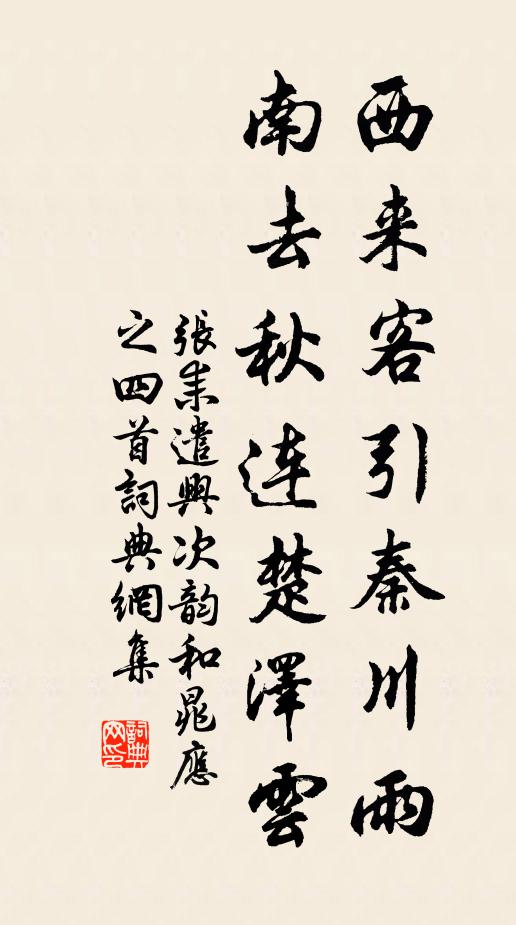 西来客引秦川雨
南去秋連楚澤雲
張耒遣興次韵和晁應
之四首詞典網集
詞典网印